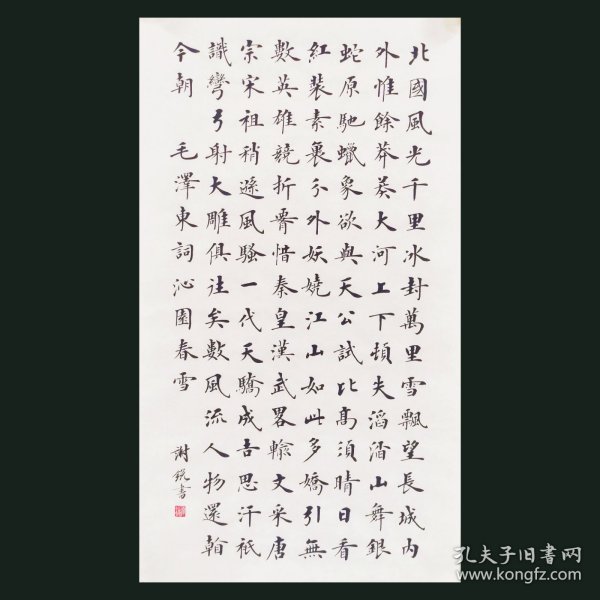 北國風光千里冰封萬里雪飄望長城內
外惟餘莽莽大河上下頓失滔滔山舞銀
蛇原馳蠟象欲與天公試比高須晴日看
紅裝素裹分外妖嬈江山如此多嬌引無
數英雄競折腰惜秦皇漢武畧輸文采唐
宗宋祖稍遜風騷一代天驕成吉思汗祗
識彎弓射大雕俱往矣數風流人物還看
今朝 毛澤東詞沁園春雪
謝銳書
孔夫子旧書网
www.kongfz.com